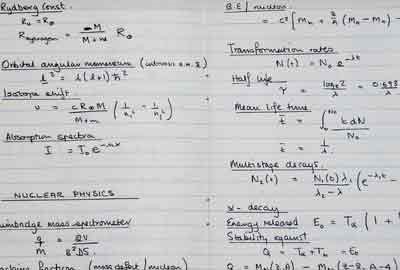 Rydberg Const.
R∞ = R∞
R_Hydrogen = M / (M + m) R∞
Orbital angular momentum
l² = l(l+1)ħ²
Isotope shift
υ = c R∞ M / (M + m) (1/n₁² − 1/n₂²)
Absorption spectra
I = I₀ e^(−nαx)
NUCLEAR PHYSICS
Bainbridge mass spectrometer
q/M = 2V / B²DS
packing fraction (mass defect / nucleon)
B.E / nucleon
= c² [Mn + Z/A (MH − Mn) −
Transformation rates
N(t) = N₀ e^(−λt)
Half life
τ = log_e 2 / λ = 0.693 / λ
Mean life time
t̄ = ∫₀^N₀ t dN / N₀
t̄ = 1/λ
Multistage decays
N₂(t) = N₁(0) λ₁ / (λ₂ − λ₁) (e^(−λ₁t) −
α-decay
Energy released E₀ = Tα (1 +
Stability against
Q = Tα + Tb = E₀
Q = M(Z,A) − M(Z−2, A−4)